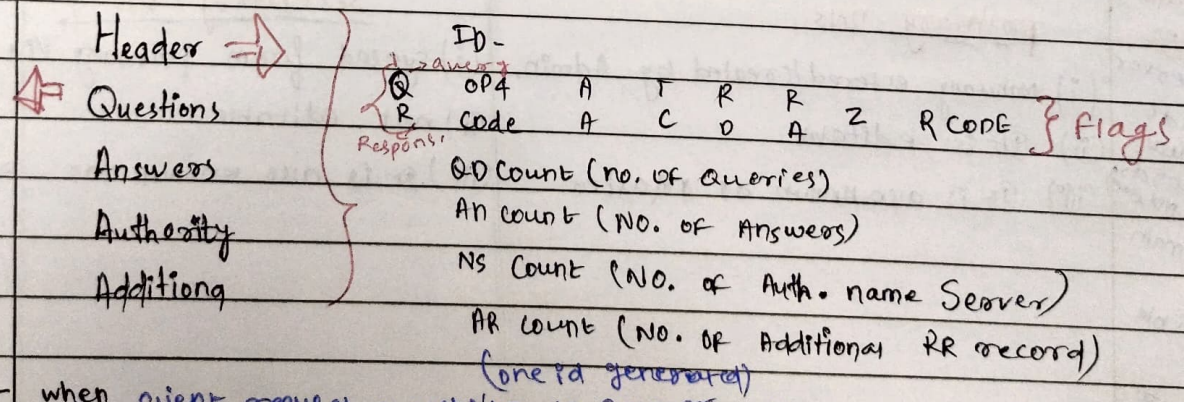 Header
Questions
Answers
Authority
Additiona
ID-
Query
Q OP4 A T R R Z R CODE } Flags
R code A C D A
Respons
QD Count (no. of Queries)
An count (No. of Answers)
NS Count (No. of Auth. name Server)
AR count (No. of Additional RR record)
(one id generated)
when client